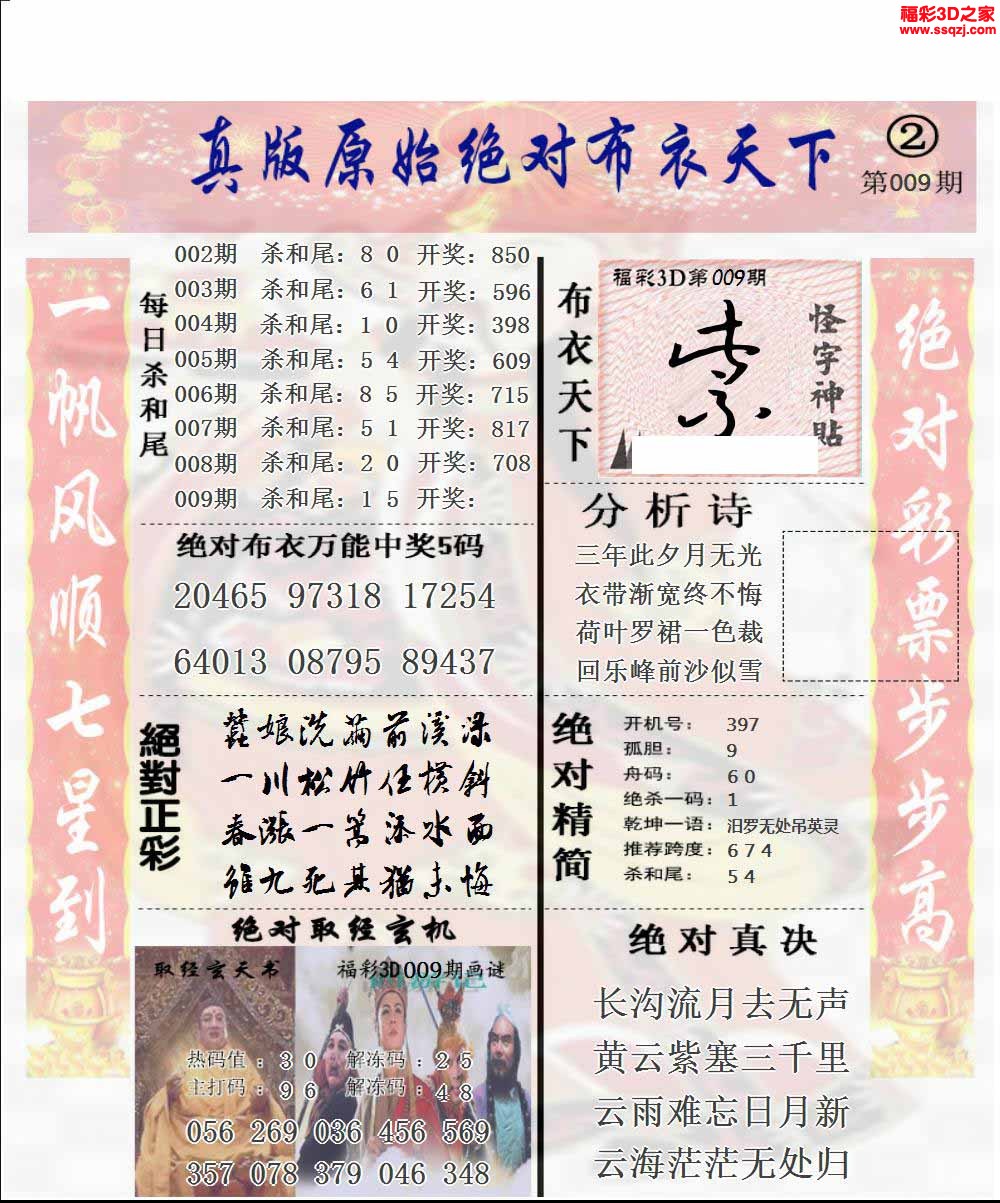 福彩3D之家
www.ssqzj.com
真版原始绝对布衣天下
②
第009期
一帆风顺七星到
每日杀和尾
002期 杀和尾：8 0 开奖：850
003期 杀和尾：6 1 开奖：596
004期 杀和尾：1 0 开奖：398
005期 杀和尾：5 4 开奖：609
006期 杀和尾：8 5 开奖：715
007期 杀和尾：5 1 开奖：817
008期 杀和尾：2 0 开奖：708
009期 杀和尾：1 5 开奖：
绝对布衣万能中奖5码
20465 97318 17254
64013 08795 89437
絕對正彩
蚕娘洗茧前溪渌
一川松竹任横斜
春涨一篙添水面
虽九死其犹未悔
绝对取经玄机
取经玄天书
福彩3D009期画谜
热码值：3 0 解冻码：2 5
主打码：9 6 解冻码：4 8
056 269 036 456 569
357 078 379 046 348
布衣天下
福彩3D第009期
怪字神貼
分析诗
三年此夕月无光
衣带渐宽终不悔
荷叶罗裙一色裁
回乐峰前沙似雪
绝对精简
开机号： 397
孤胆： 9
舟码： 6 0
绝杀一码：1
乾坤一语：汨罗无处吊英灵
推荐跨度：6 7 4
杀和尾： 5 4
绝对真决
长沟流月去无声
黄云紫塞三千里
云雨难忘日月新
云海茫茫无处归
绝对彩票步步高